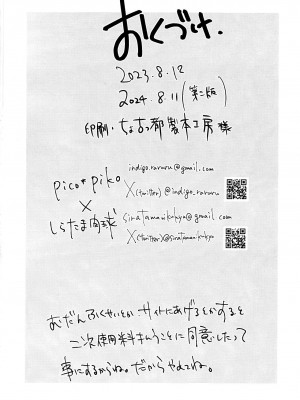 おくづけ.
2023.8.12
2024.8.11(第二版)
印刷・ちょ古っ都製本工房 様
pico*piko
indigo.raruru@gmail.com
X(twitter)@indigo_raruru
×
しらたま肉球
siratamanikukyu@gmail.com
X(twitter)@siratamanikukyu
おだんふくせいとか サイトにあげるとかすると
二次使用料払うことに同意したって
事にするからね。だからやめてね。